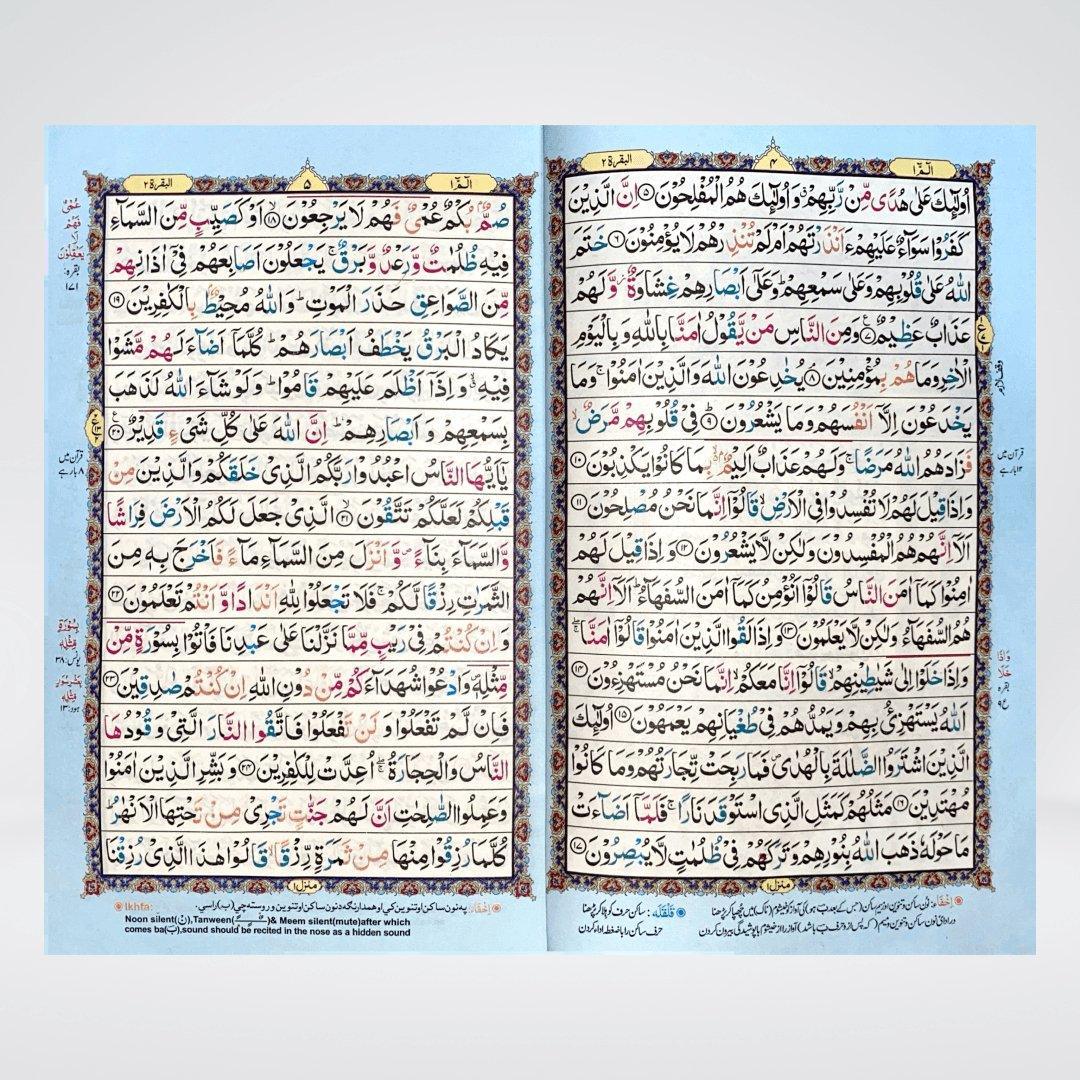 الٓمّٓ ١
٤
البقرة ٢
اُولٰٓئِكَ عَلٰى هُدًى مِّنْ رَّبِّهِمْ ۙ وَاُولٰٓئِكَ هُمُ الْمُفْلِحُوْنَ ۝۵ اِنَّ الَّذِيْنَ
كَفَرُوْا سَوَآءٌ عَلَيْهِمْ ءَاَنْذَرْتَهُمْ اَمْ لَمْ تُنْذِرْهُمْ لَا يُؤْمِنُوْنَ ۝۶ خَتَمَ
اللّٰهُ عَلٰى قُلُوْبِهِمْ وَعَلٰى سَمْعِهِمْ ؕ وَعَلٰٓى اَبْصَارِهِمْ غِشَاوَةٌ ۫ وَّلَهُمْ
عَذَابٌ عَظِيْمٌ ۝۷ وَمِنَ النَّاسِ مَنْ يَّقُوْلُ اٰمَنَّا بِاللّٰهِ وَبِالْيَوْمِ
الْاٰخِرِ وَمَا هُمْ بِمُؤْمِنِيْنَ ۝۸ يُخٰدِعُوْنَ اللّٰهَ وَالَّذِيْنَ اٰمَنُوْا ۚ وَمَا
يَخْدَعُوْنَ اِلَّآ اَنْفُسَهُمْ وَمَا يَشْعُرُوْنَ ۝۹ فِيْ قُلُوْبِهِمْ مَّرَضٌ ۙ
فَزَادَهُمُ اللّٰهُ مَرَضًا ۚ وَلَهُمْ عَذَابٌ اَلِيْمٌ ۙ بِمَا كَانُوْا يَكْذِبُوْنَ ۝۱۰
وَاِذَا قِيْلَ لَهُمْ لَا تُفْسِدُوْا فِي الْاَرْضِ ۙ قَالُوْٓا اِنَّمَا نَحْنُ مُصْلِحُوْنَ ۝۱۱
اَلَآ اِنَّهُمْ هُمُ الْمُفْسِدُوْنَ وَلٰكِنْ لَّا يَشْعُرُوْنَ ۝۱۲ وَاِذَا قِيْلَ لَهُمْ
اٰمِنُوْا كَمَآ اٰمَنَ النَّاسُ قَالُوْٓا اَنُؤْمِنُ كَمَآ اٰمَنَ السُّفَهَآءُ ؕ اَلَآ اِنَّهُمْ
هُمُ السُّفَهَآءُ وَلٰكِنْ لَّا يَعْلَمُوْنَ ۝۱۳ وَاِذَا لَقُوا الَّذِيْنَ اٰمَنُوْا قَالُوْٓا اٰمَنَّا ۖۚ
وَاِذَا خَلَوْا اِلٰى شَيٰطِيْنِهِمْ ۙ قَالُوْٓا اِنَّا مَعَكُمْ ۙ اِنَّمَا نَحْنُ مُسْتَهْزِءُوْنَ ۝۱۴
اَللّٰهُ يَسْتَهْزِئُ بِهِمْ وَيَمُدُّهُمْ فِيْ طُغْيَانِهِمْ يَعْمَهُوْنَ ۝۱۵ اُولٰٓئِكَ
الَّذِيْنَ اشْتَرَوُا الضَّلٰلَةَ بِالْهُدٰى ۪ فَمَا رَبِحَتْ تِّجَارَتُهُمْ وَمَا كَانُوْا
مُهْتَدِيْنَ ۝۱۶ مَثَلُهُمْ كَمَثَلِ الَّذِي اسْتَوْقَدَ نَارًا ۚ فَلَمَّآ اَضَآءَتْ
مَا حَوْلَهٗ ذَهَبَ اللّٰهُ بِنُوْرِهِمْ وَتَرَكَهُمْ فِيْ ظُلُمٰتٍ لَّا يُبْصِرُوْنَ ۝۱۷
منزل ١
وقف لازم
قرآن میں
۱۲ بار ہے
وَاِذَا
خَلَا
بقرہ
ع ۹
اِخْفَاء: نون ساکن و تنوین اور میم ساکن (جس کے بعد ب ہو) کی آواز کو خیشوم (ناک) میں چھپا کر پڑھنا
قَلْقَلَه: ساکن حرف کو ہلا کر پڑھنا
الٓمّٓ ١
٥
البقرة ٢
صُمٌّ بُكْمٌ عُمْيٌ فَهُمْ لَا يَرْجِعُوْنَ ۝۱۸ اَوْ كَصَيِّبٍ مِّنَ السَّمَآءِ
فِيْهِ ظُلُمٰتٌ وَّرَعْدٌ وَّبَرْقٌ ۚ يَجْعَلُوْنَ اَصَابِعَهُمْ فِيْٓ اٰذَانِهِمْ
مِّنَ الصَّوَاعِقِ حَذَرَ الْمَوْتِ ؕ وَاللّٰهُ مُحِيْطٌۢ بِالْكٰفِرِيْنَ ۝۱۹
يَكَادُ الْبَرْقُ يَخْطَفُ اَبْصَارَهُمْ ؕ كُلَّمَآ اَضَآءَ لَهُمْ مَّشَوْا
فِيْهِ ۙ وَاِذَآ اَظْلَمَ عَلَيْهِمْ قَامُوْا ؕ وَلَوْ شَآءَ اللّٰهُ لَذَهَبَ
بِسَمْعِهِمْ وَاَبْصَارِهِمْ ؕ اِنَّ اللّٰهَ عَلٰى كُلِّ شَيْءٍ قَدِيْرٌ ۝۲۰
يٰٓاَيُّهَا النَّاسُ اعْبُدُوْا رَبَّكُمُ الَّذِيْ خَلَقَكُمْ وَالَّذِيْنَ مِنْ
قَبْلِكُمْ لَعَلَّكُمْ تَتَّقُوْنَ ۝۲۱ الَّذِيْ جَعَلَ لَكُمُ الْاَرْضَ فِرَاشًا
وَّالسَّمَآءَ بِنَآءً ۪ وَّاَنْزَلَ مِنَ السَّمَآءِ مَآءً فَاَخْرَجَ بِهٖ مِنَ
الثَّمَرٰتِ رِزْقًا لَّكُمْ ۚ فَلَا تَجْعَلُوْا لِلّٰهِ اَنْدَادًا وَّاَنْتُمْ تَعْلَمُوْنَ ۝۲۲
وَاِنْ كُنْتُمْ فِيْ رَيْبٍ مِّمَّا نَزَّلْنَا عَلٰى عَبْدِنَا فَاْتُوْا بِسُوْرَةٍ مِّنْ
مِّثْلِهٖ ۪ وَادْعُوْا شُهَدَآءَكُمْ مِّنْ دُوْنِ اللّٰهِ اِنْ كُنْتُمْ صٰدِقِيْنَ ۝۲۳
فَاِنْ لَّمْ تَفْعَلُوْا وَلَنْ تَفْعَلُوْا فَاتَّقُوا النَّارَ الَّتِيْ وَقُوْدُهَا
النَّاسُ وَالْحِجَارَةُ ۖۚ اُعِدَّتْ لِلْكٰفِرِيْنَ ۝۲۴ وَبَشِّرِ الَّذِيْنَ اٰمَنُوْا
وَعَمِلُوا الصّٰلِحٰتِ اَنَّ لَهُمْ جَنّٰتٍ تَجْرِيْ مِنْ تَحْتِهَا الْاَنْهٰرُ ؕ
كُلَّمَا رُزِقُوْا مِنْهَا مِنْ ثَمَرَةٍ رِّزْقًا ۙ قَالُوْا هٰذَا الَّذِيْ رُزِقْنَا
منزل ١
عُمْيٌ
فَهُمْ
لَا
يَعْقِلُوْنَ
بقرہ:
۱۷۱
قرآن میں
۸ بار ہے
بِسُوْرَةٍ
مِّثْلِهٖ
یونس: ۳۸
بِعَشْرِ سُوَرٍ
مِّثْلِهٖ
ہود: ۱۳
Ikhfa:
Noon silent(نْ),Tanween(ـًـٍـٌ)& Meem silent(mute)after which
comes ba(بَ),sound should be recited in the nose as a hidden sound